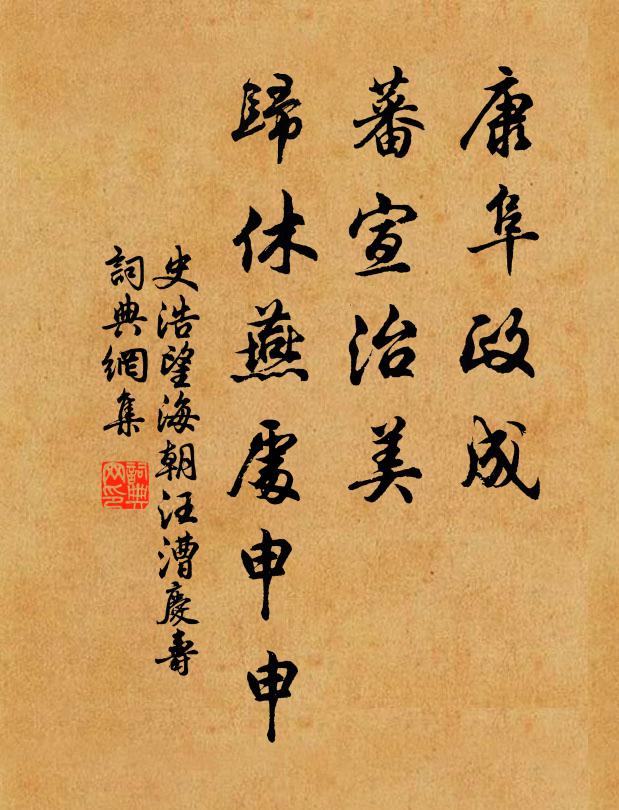 康阜政成
蕃宣治美
歸休燕處申申
史浩望海朝汪漕慶壽
詞典網集
詞典網印